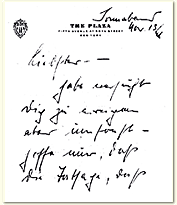 Sonnabend
Nov. 13
THE PLAZA
FIFTH AVENUE AT 59TH STREET
NEW YORK
Liebster – –
habe versucht
dich zu erreichen
aber umsonst –
hoffe nur, daß
die daß